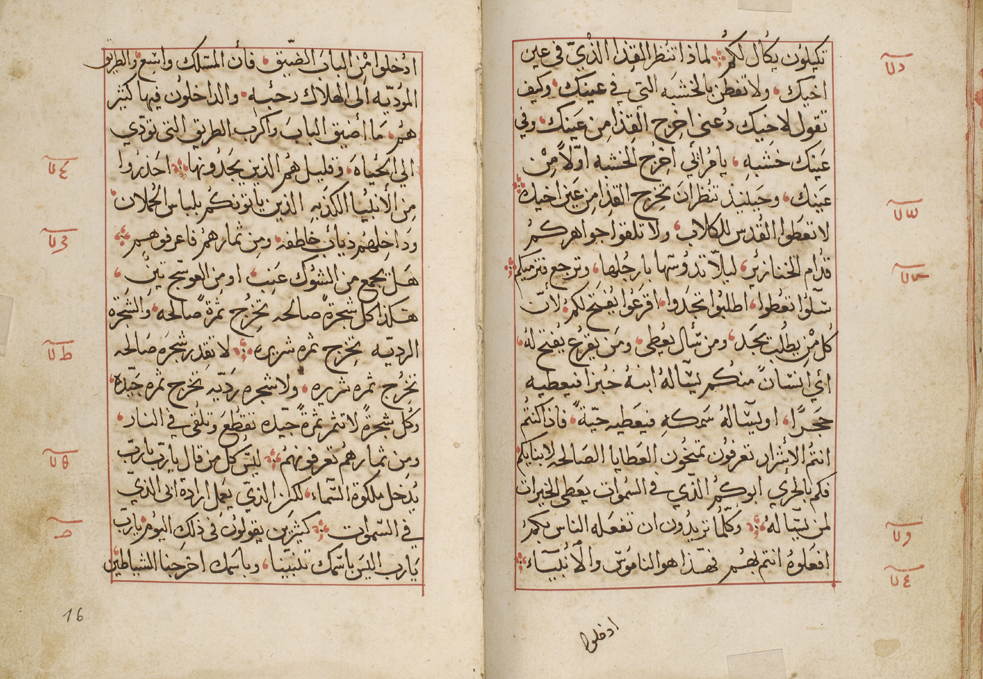 تكيلون يكال لكم لماذا تنظر القذا الذي في عين
اخيك ولا تفطن بالخشبه التي في عينك وكيف
تقول لاخيك دعني اخرج القذا من عينك وفي
عينك خشبه يامرائي اخرج الخشبه اولا من
عينك وحينيذ تنظر ان تخرج القذا من عين اخيك
لا تعطوا القدس للكلاب ولا تلقوا جواهركم
قدام الخنازير ليلا تدوسها بارجلها وترجع فتزمنكم
سلوا تعطوا اطلبوا تجدوا اقرعوا يفتح لكم لان
كل من يطلب يجد ومن سال يعطى ومن يقرع يفتح له
اي انسان منكم يساله ابنه خبزا فيعطيه
حجرا او يساله سمكه فيعطيه حية فاذا كنتم
انتم الاشرار تعرفون تمنحون العطايا الصالحه لابنايكم
فكم بالحري ابوكم الذي في السموات يعطي الخيرات
لمن يساله وكلما تريدون ان تفعله الناس بكم
افعلوه انتم بهم فهذا هو الناموس والانبياء
ادخلوا
ادخلوا من الباب الضيق فان المسلك واسع والطريق
المودية الى الهلاك رحبه والداخلون فيها كثير
هم ما اضيق الباب واكرب الطريق التي تودي
الى الحياه وقليل هم الذين يجدونها احذروا
من الانبيا الكذبه الذين ياتونكم بلباس الحملان
وداخلهم دياب خاطفه ومن ثمارهم فاعرفوهم
هل يجمع من الشوك عنب او من العوسج تين
هكذا كل شجرة صالحه تخرج ثمرة صالحه والشجره
الرديه تخرج ثمره شريره لا تقدر شجره صالحه
تخرج ثمره شريره ولا شجره رديه تخرج ثمره جيده
وكل شجرة لا تثمر ثمرة جيده تقطع وتلقى في النار
ومن ثمارهم تعرفونهم ليس كل من قال يارب يارب
يدخل ملكوة السماء لكن الذي يعمل ارادة ابي الذي
في السموات كثيرين يقولون في ذلك اليوم يارب
يارب اليس باسمك تنبينا وباسمك اخرجنا الشياطين
16